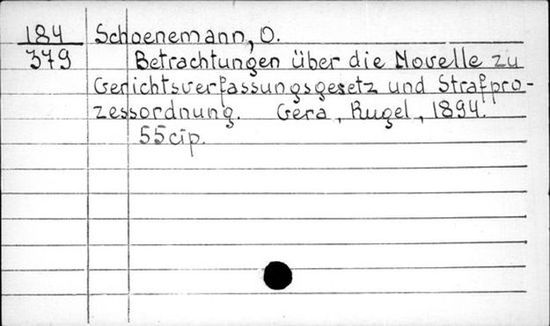 184 Schoenemann, O.
379 Betrachtungen über die Novelle zu
Gerichtsverfassungsgesetz und Strafpro-
zessordnung. Gera, Rugel, 1894.
55 стр.